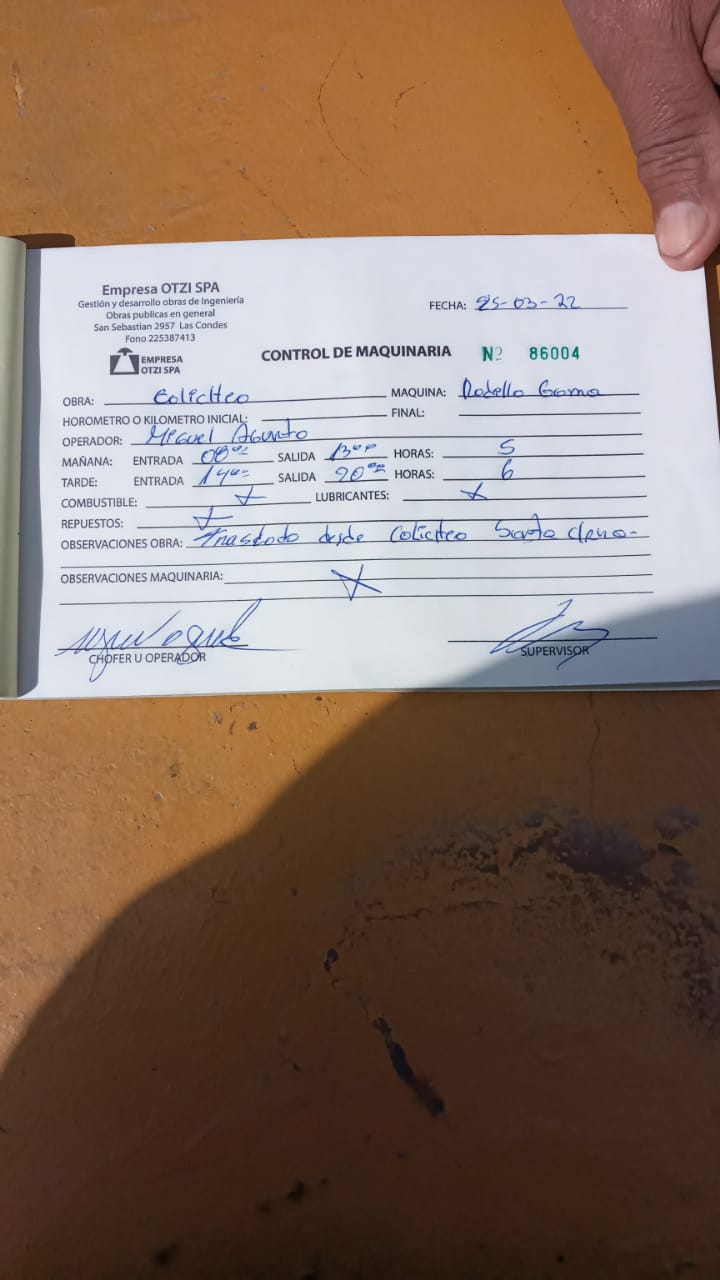 Empresa OTZI SPA
Gestión y desarrollo obras de Ingeniería
Obras publicas en general
San Sebastian 2957 Las Condes
Fono 225387413
EMPRESA
OTZI SPA
FECHA: 25-03-22
CONTROL DE MAQUINARIA Nº 86004
OBRA: Colicheo MAQUINA: Rodello Goma
HOROMETRO O KILOMETRO INICIAL: FINAL:
OPERADOR: Miguel
MAÑANA: ENTRADA 08°° SALIDA 13°° HORAS: 5
TARDE: ENTRADA 14°° SALIDA 20°° HORAS: 6
COMBUSTIBLE: LUBRICANTES:
REPUESTOS:
OBSERVACIONES OBRA: Traslado desde Colicheo Santa
OBSERVACIONES MAQUINARIA:
CHOFER U OPERADOR
SUPERVISOR